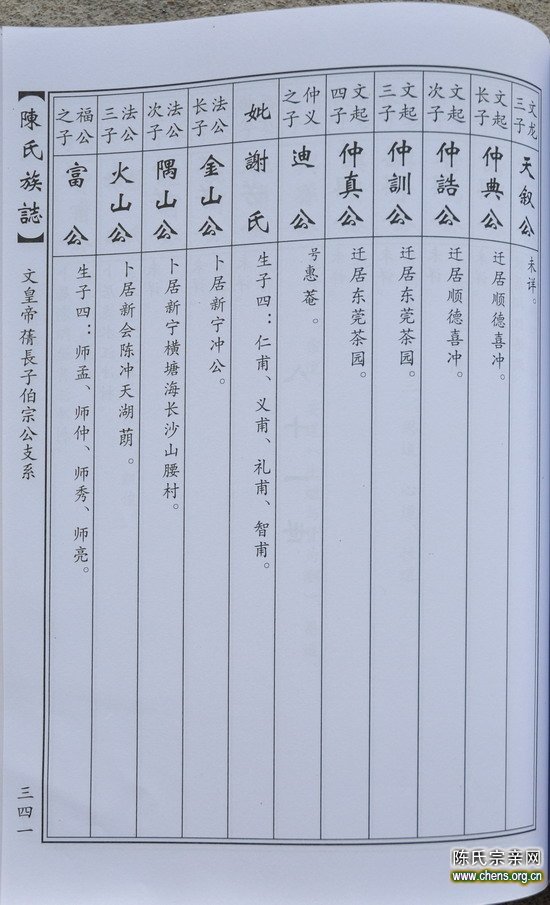 文龙三子
天叙公
未详。
文起长子
仲典公
迁居顺德喜冲。
文起次子
仲誥公
迁居顺德喜冲。
文起三子
仲訓公
迁居东莞茶园。
文起四子
仲真公
迁居东莞茶园。
仲义之子
迪公
号惠菴。
妣
謝氏
生子四：仁甫、义甫、礼甫、智甫。
法公长子
金山公
卜居新宁冲公。
法公次子
隅山公
卜居新宁横塘海长沙山腰村。
法公三子
火山公
卜居新会陈冲天湖萠。
福公之子
富公
生子四：师孟、师仲、师秀、师亮。
【陳氏族誌】
文皇帝蒨長子伯宗公支系
三四一
陈氏宗亲网
www.chens.org.cn